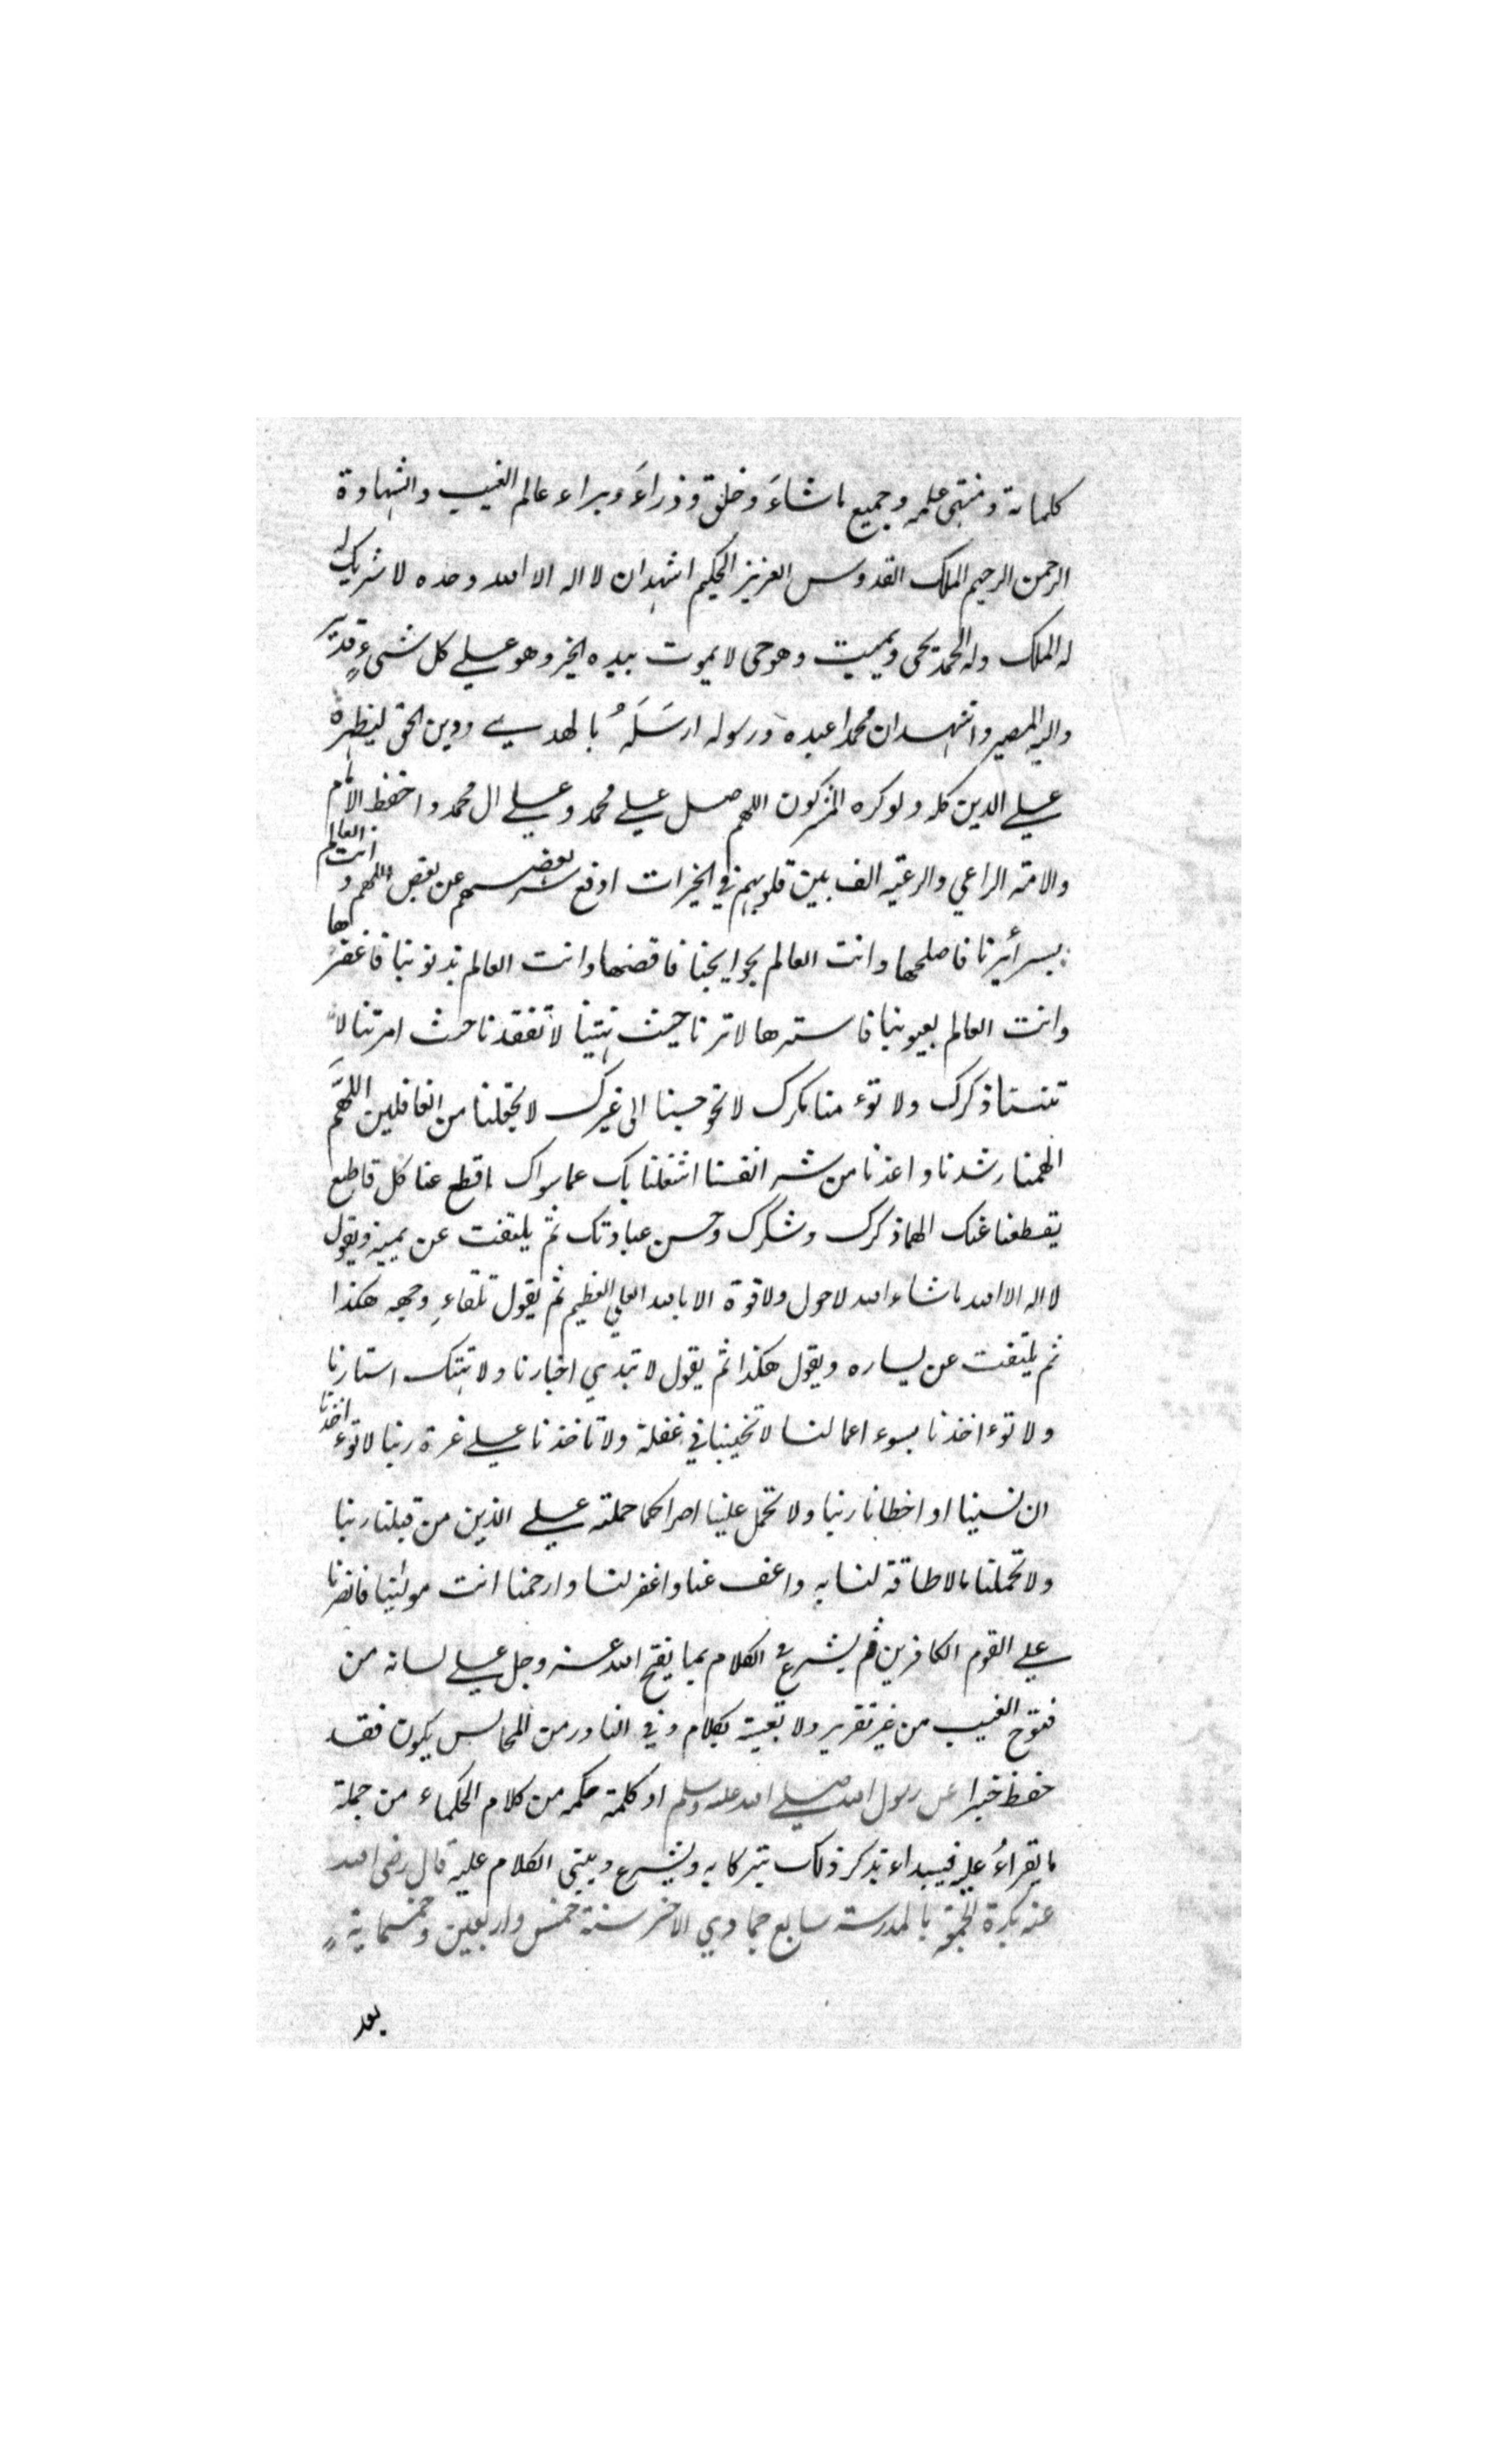 كلماته و منتهى علمه وجميع ماشاءَ وخلق وذراءَ وبراء عالم الغيب والشهادة
الرحمن الرحيم الملك القدوس العزيز الحكيم اشهد ان لا اله الا الله وحده لا شريك له
له الملك وله الحمد يحى ويميت وهو حى لا يموت بيده الخير وهو على كل شىءٍ قدير
واليه المصير واشهد ان محمدا عبده ورسوله ارسَلَهُ بالهدى ودين الحق ليظهره
على الدين كله ولو كره المشركون اللهم صل على محمد وعلى ال محمد واحفظ الامام
والامة الراعي والرعية الف بين قلوبهم في الخيرات ادفع شر بعضهم عن بعض اللهم و انت العالم
بسرأيرنا فاصلحها وانت العالم بحوايجنا فاقضها وانت العالم بذنوبنا فاغفرها
وانت العالم بعيوبنا فاسترها لا ترنا حيث نهيتنا لا تفقدنا حيث امرتنا لا
تنسنا ذكرك ولا توء منا مكرك لا تحوجنا الى غيرك لا تجعلنا من الغافلين اللهم
الهمنا رشدنا واعذنا من شر انفسنا اشغلنا بك عما سواك اقطع عنا كل قاطع
يقطعنا عنك الهمنا ذكرك وشكرك وحسن عبادتك ثم يلتفت عن يمينه ويقول
لا اله الا الله ماشاء الله لا حول ولا قوة الا بالله العلي العظيم ثم يقول تلقاءِ وجهه هكذا
ثم يلتفت عن يساره ويقول هكذا ثم يقول لا تبدي اخبارنا ولا تهتك استارنا
ولا توء اخذنا بسوء اعمالنا لا تحينا في غفلة ولا تاخذنا على غرة ربنا لا توء اخذنا
ان نسينا او اخطانا ربنا ولا تحمل علينا اصرا كما حملته على الذين من قبلنا ربنا
ولا تحملنا مالا طاقة لنا به واعف عنا واغفر لنا وارحمنا انت مولينا فانصرنا
على القوم الكافرين ثم يشرع في الكلام بما يفتح الله عز وجل على لسانه من
فتوح الغيب من غير تقرير ولا تعبية بكلام وفي النادر من المجالس يكون فقد
حفظ خبرا عن رسول الله صلى الله عليه وسلم او كلمة حكمه من كلام الحكماء من جملة
ما يقراءُ عليه فيبداء بذكر ذلك تبركا به ويشرع ويبنى الكلام عليه قال رضى الله
عنه بكرة الجمعة بالمدرسة سابع جمادي الاخر سنة خمس واربعين وخمسماية
بعد